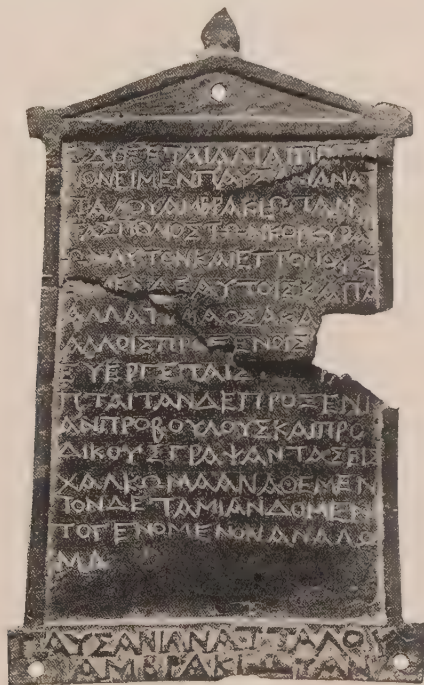 ΕΔΟΞΕΤΑΙΑΛΙΑΙΠΡΟ
ΞΟΝΕΙΜΕΝΠΑΥΣΑΝΙΑΝΑ
ΤΑΛΟΥΑΜΒΡΑΚΙΩΤΑΝ
ΤΑΣΠΟΛΙΟΣΤΩΝΚΟΡΚΥΡΑ
ΙΩΝΑΥΤΟΝΚΑΙΕΓΓΟΝΟΥΣ
ΕΙΜΕΝΔΕΑΥΤΟΙΣΚΑΙΤΑ
ΑΛΛΑΤΙΜΙΑΟΣΑΚΑ
ΑΛΛΟΙΣΠΡΟΞΕΝΟΙΣ
ΕΥΕΡΓΕΤΑΙΣ ΓΡΑ
ΠΤΑΙΤΑΝΔΕΠΡΟΞΕΝΙ
ΑΝΠΡΟΒΟΥΛΟΥΣΚΑΙΠΡΟ
ΔΙΚΟΥΣΓΡΑΨΑΝΤΑΣΕΙΣ
ΧΑΛΚΩΜΑΑΝΑΘΕΜΕΝ
ΤΟΝΔΕΤΑΜΙΑΝΔΟΜΕΝ
ΤΟΓΕΝΟΜΕΝΟΝΑΝΑΛΩ
ΜΑ
ΠΑΥΣΑΝΙΑΝΑΤΤΑΛΟΥ
ΑΜΒΡΑΚΙΩΤΑΝ